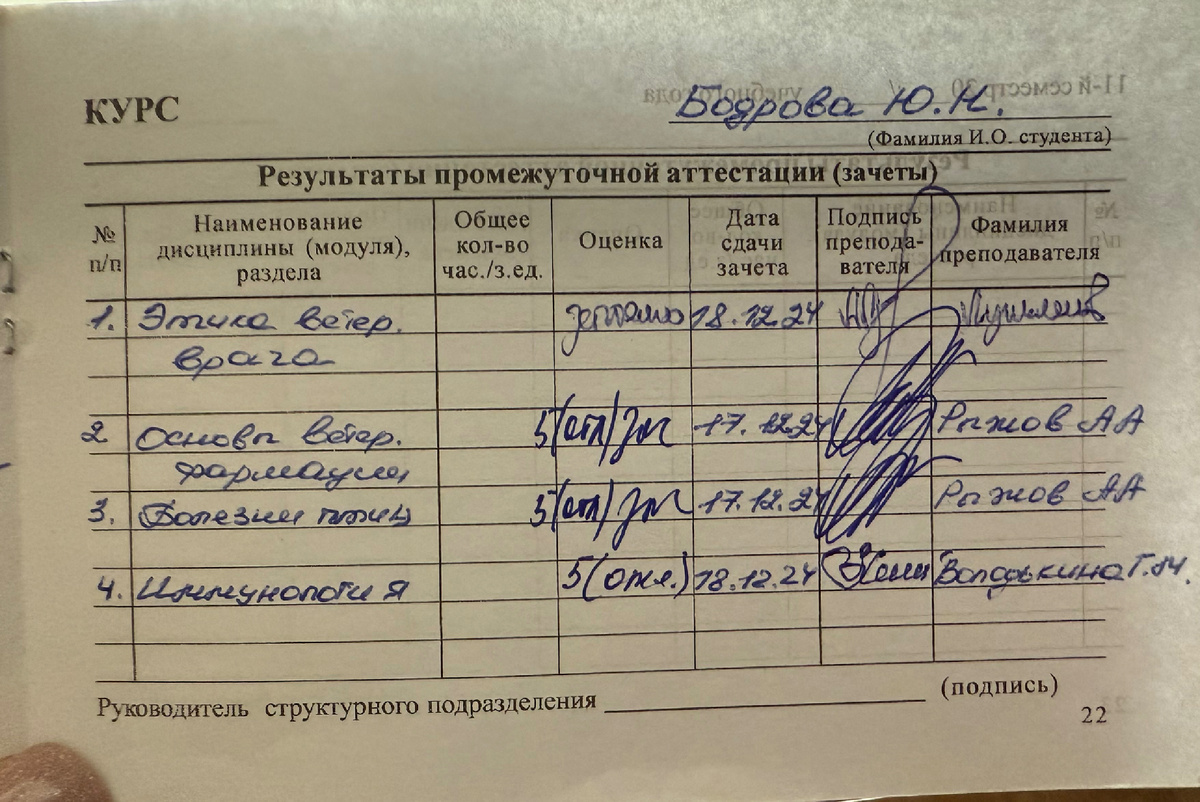 КУРС
Бодрова Ю.Н.
(Фамилия И.О. студента)
Результаты промежуточной аттестации (зачеты)
№ п/п
Наименование дисциплины (модуля), раздела
Общее кол-во час./з.ед.
Оценка
Дата сдачи зачета
Подпись препода-вателя
Фамилия преподавателя
1. Этика ветер. 18.12.24
врача
2 Основы ветер. 5(отл) 17.12.24 Рыжов АА
фармации
3. Болезни птиц 5(отл) 17.12.24 Рыжов АА
4. Иммунология 5(отл.) 18.12.24 Володькина Г.М.
Руководитель структурного подразделения (подпись)
22